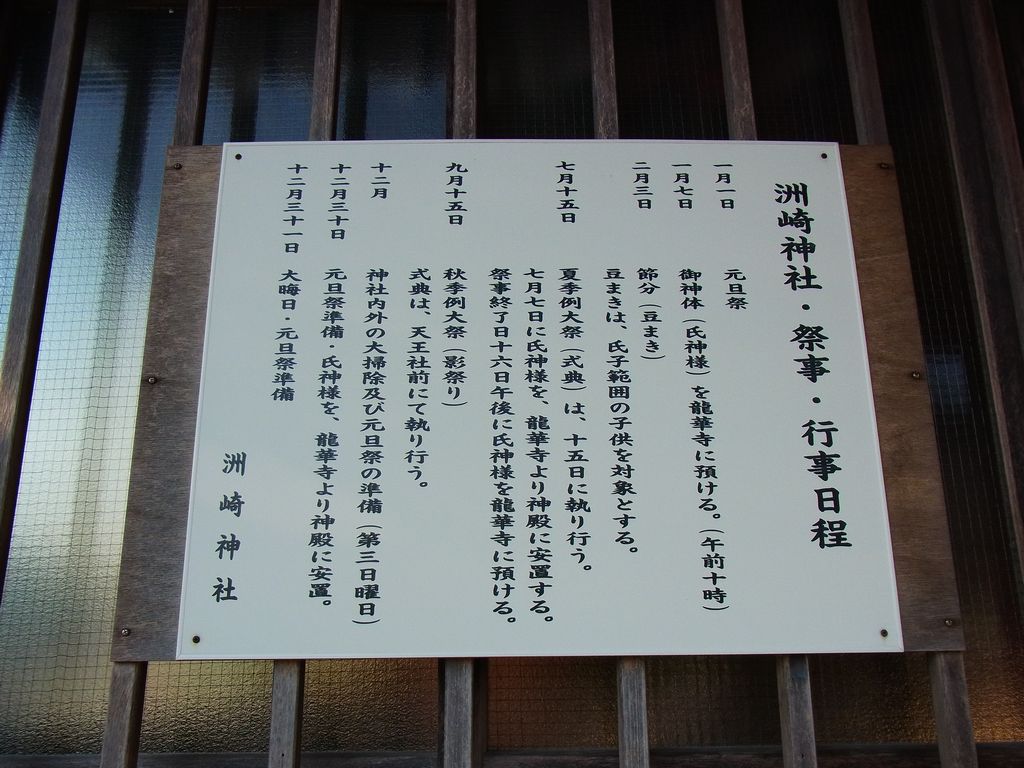 洲崎神社・祭事・行事日程
一月一日 元旦祭
一月七日 御神体（氏神様）を龍華寺に預ける。（午前十時）
二月三日 節分（豆まき）
豆まきは、氏子範囲の子供を対象とする。
七月十五日 夏季例大祭（式典）は、十五日に執り行う。
七月七日に氏神様を、龍華寺より神殿に安置する。
祭事終了日十六日午後に氏神様を龍華寺に預ける。
九月十五日 秋季例大祭（影祭り）
式典は、天王社前にて執り行う。
十二月 神社内外の大掃除及び元旦祭の準備（第三日曜日）
十二月三十日 元旦祭準備・氏神様を、龍華寺より神殿に安置。
十二月三十一日 大晦日・元旦祭準備
洲崎神社